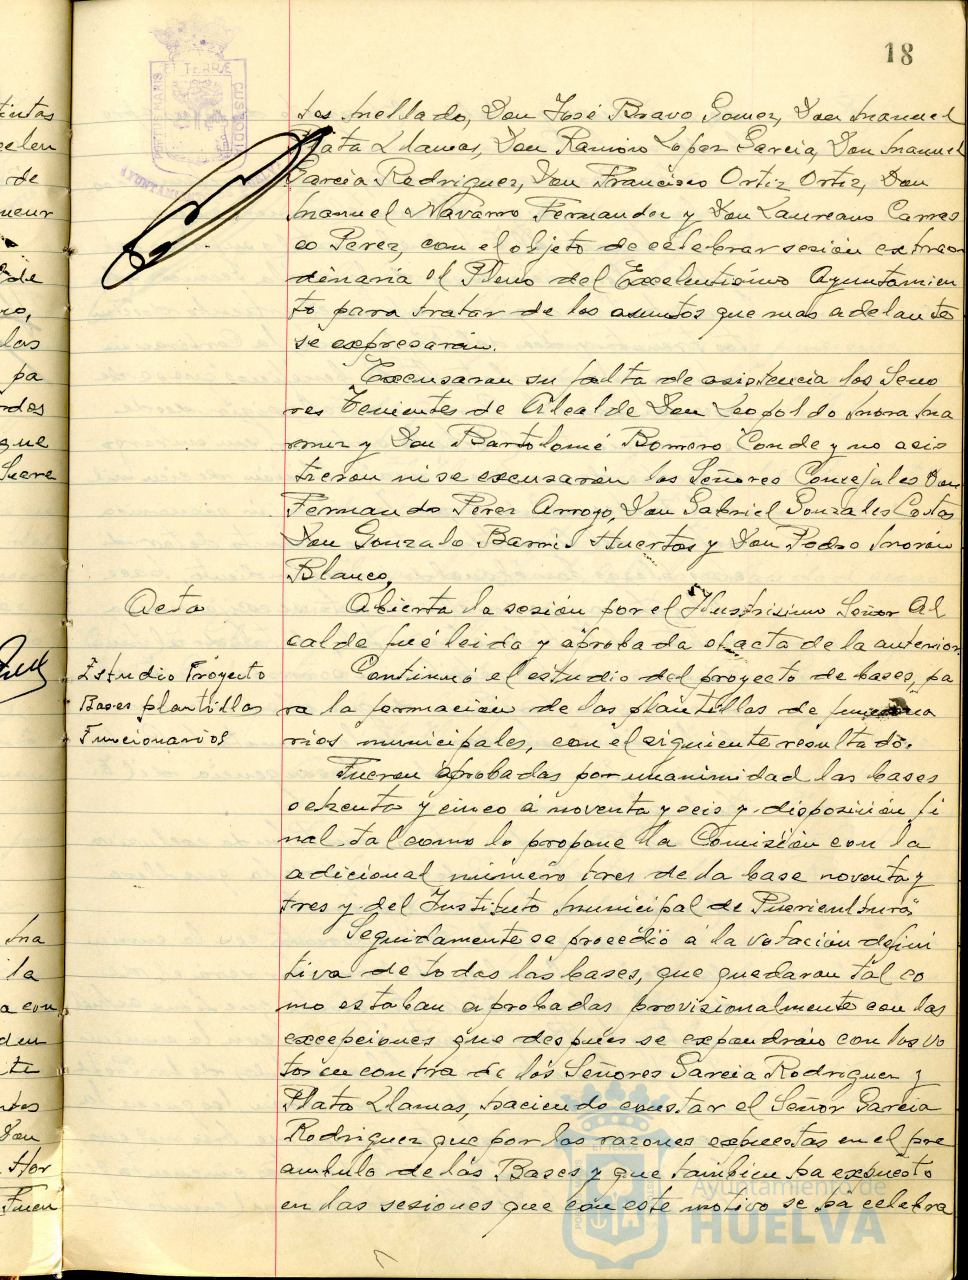 18
PORTUS MARIS ET TERRE CUSTODIA
tos Mellado, Don José Bravo Gomez, Don Manuel
Plata Llamas, Don Ramón Lopez Garcia, Don Manuel
Garcia Rodriguez, Don Francisco Ortiz Ortiz, Don
Manuel Navarro Fernandez y Don Laureano Carras
co Perez, con el objeto de celebrar sesión extraor
dinaria el Pleno del Excelentísimo Ayuntamien
to para tratar de los asuntos que mas adelante
se expresarán.
Excusaron su falta de asistencia los Seño
res Tenientes de Alcalde Don Leopoldo Mora Ma
y Don Bartolomé Borrero Conde y no asis
tieron ni se excusarón los Señores Concejales Don
Fernando Perez Arroyo, Don Gabriel Gonzales Costas
Don Gonzalo Barril Huertas y Don Pedro Morón
Blanco.
Acta
Abierta la sesión por el Ilustrisimo Señor Al
calde fué leida y aprobada el acta de la anterior.
Estudio Proyecto
Bases plantillas
Funcionarios
Continuó el estudio del proyecto de bases, pa
ra la formación de las plantillas de funciona
rios municipales, con el siguiente resultado.
Fueron aprobadas por unanimidad las bases
ochenta y cinco á noventa y seis y disposición fi
nal tal como lo propone la Comisión con la
adicional número tres de la base noventa y
tres y del Instituto Municipal de Puericultura
Seguidamente se procedió á la votación defini
tiva de todas lás bases, que quedaron tal co
mo estaban aprobadas provisionalmente con las
excepciones que despúes se expondrán con los vo
tos en contra de los Señores Garcia Rodriguez y
Plata Llamas, haciendo constar el Señor Garcia
Rodriguez que por las razones expuestas en el pre
ambulo de lás Bases y que tambien ha expuesto
en las sesiones que con este motivo se há celebra
Ayuntamiento de
HUELVA